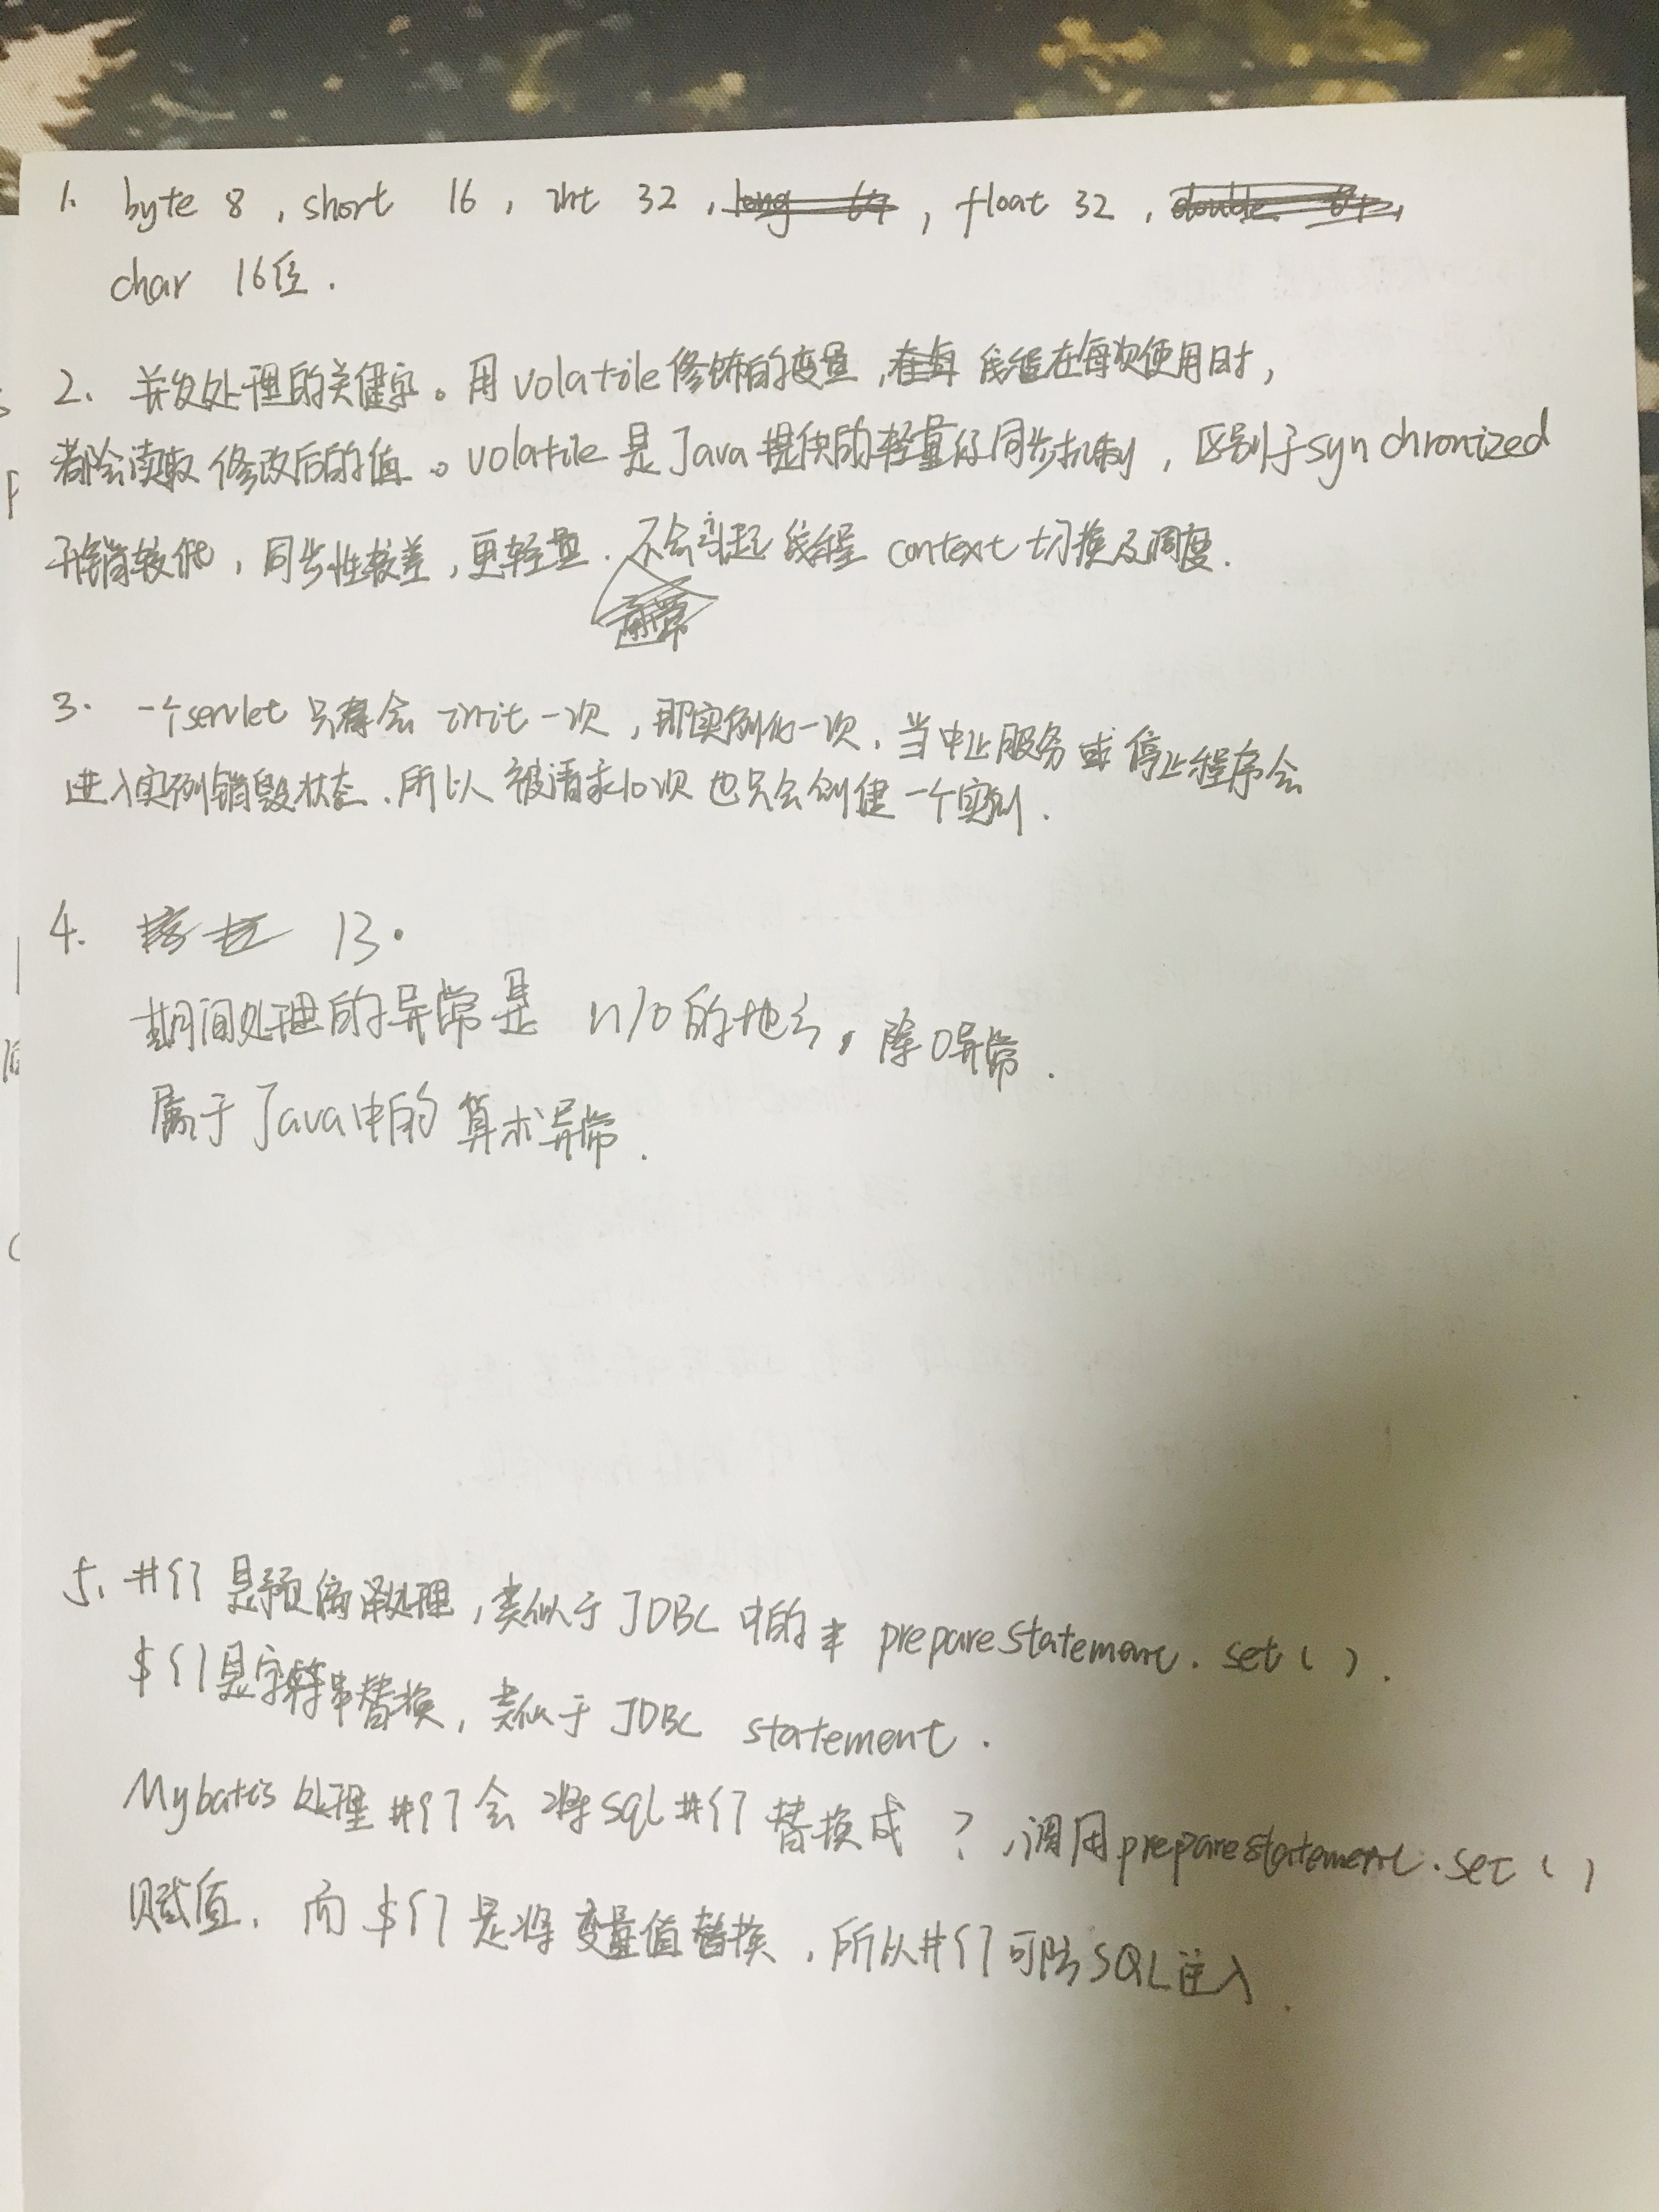 1. byte 8 , short 16 , int 32 , long 64 , float 32 , double 64 ,
char 16位 .
2. 并发处理的关键字。用volatile修饰的变量 ,在每 线程在每次使用时,
都会读取 修改后的值 。volatile 是Java提供的轻量的同步机制 , 区别于synchronized
开销较低 , 同步性较差 , 更轻量 . 不会引起 线程 context 切换及调度.
通常
3. 一个servlet 只存会 init 一次 , 即实例化一次 . 当中止服务 或 停止程序会
进入实例销毁状态 . 所以 被请求10次 也只会创建 一个实例 .
4. 13.
期间处理的异常是 n/0的地方, 除0异常 .
属于Java中的 算术异常 .
5. #{} 是预编译处理 , 类似于 JDBC 中的 preparestatement. set ( ) .
${}是字符串替换 , 类似于 JDBC statement .
Mybatis 处理 #{} 会 将sql #{} 替换成 ? , 调用preparestatement. set ( )
赋值 . 而 ${} 是将 变量值替换 , 所以 #{} 可防 SQL注入 .